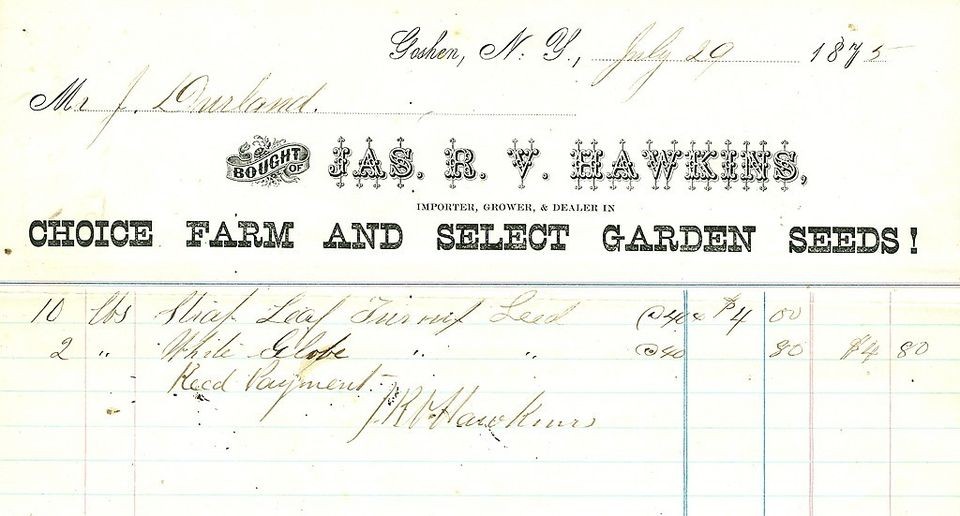 Goshen, N. Y., July 29 1875
Mr J. Durland.
BOUGHT OF JAS. R. V. HAWKINS,
IMPORTER, GROWER, & DEALER IN
CHOICE FARM AND SELECT GARDEN SEEDS!
10 lbs Strap Leaf Turnip Seed @40c $4 00
2 " White Globe " " @40 80 $4 80
Recd Payment
J.R.V. Hawkins